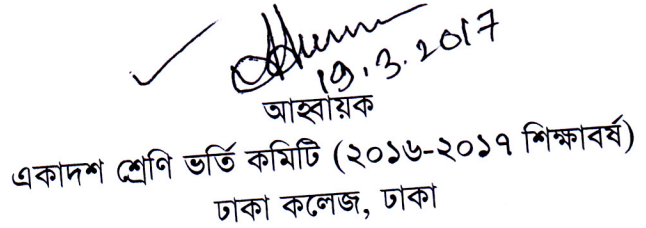 19.3.2017
আহবায়ক
একাদশ শ্রেণি ভর্তি কমিটি (২০১৬-২০১৭ শিক্ষাবর্ষ)
ঢাকা কলেজ, ঢাকা